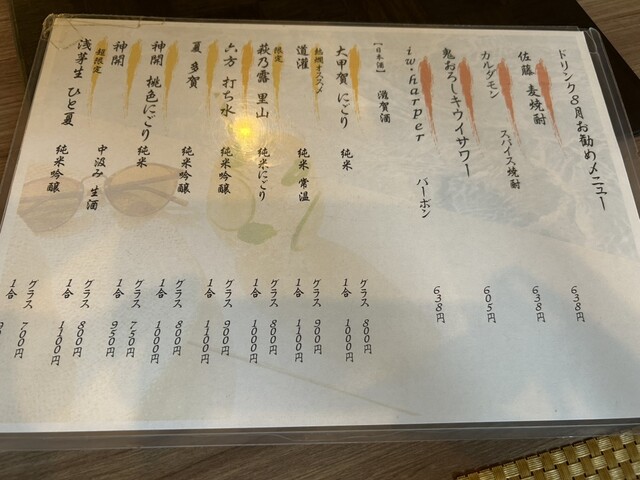 ドリンク8月お勧めメニュー
佐藤 麦焼酎 638円
カルダモン スパイス焼酎 638円
鬼おろしキウイサワー 605円
iw・harper バーボン 638円
【日本酒】 滋賀酒
大甲賀 にごり 純米 グラス 800円
1合 1000円
熱燗オススメ
道灌 純米 常温 グラス 900円
1合 1100円
限定
萩乃露 里山 純米にごり グラス 800円
1合 1000円
六方 打ち水 純米吟醸 グラス 900円
1合 1100円
夏 多賀 純米吟醸 グラス 800円
1合 1000円
神開 桃色にごり 純米 グラス 750円
1合 950円
神開 中汲み 生酒 グラス 800円
1合
超限定
浅茅生 ひと夏 純米吟醸 グラス 700円
1合